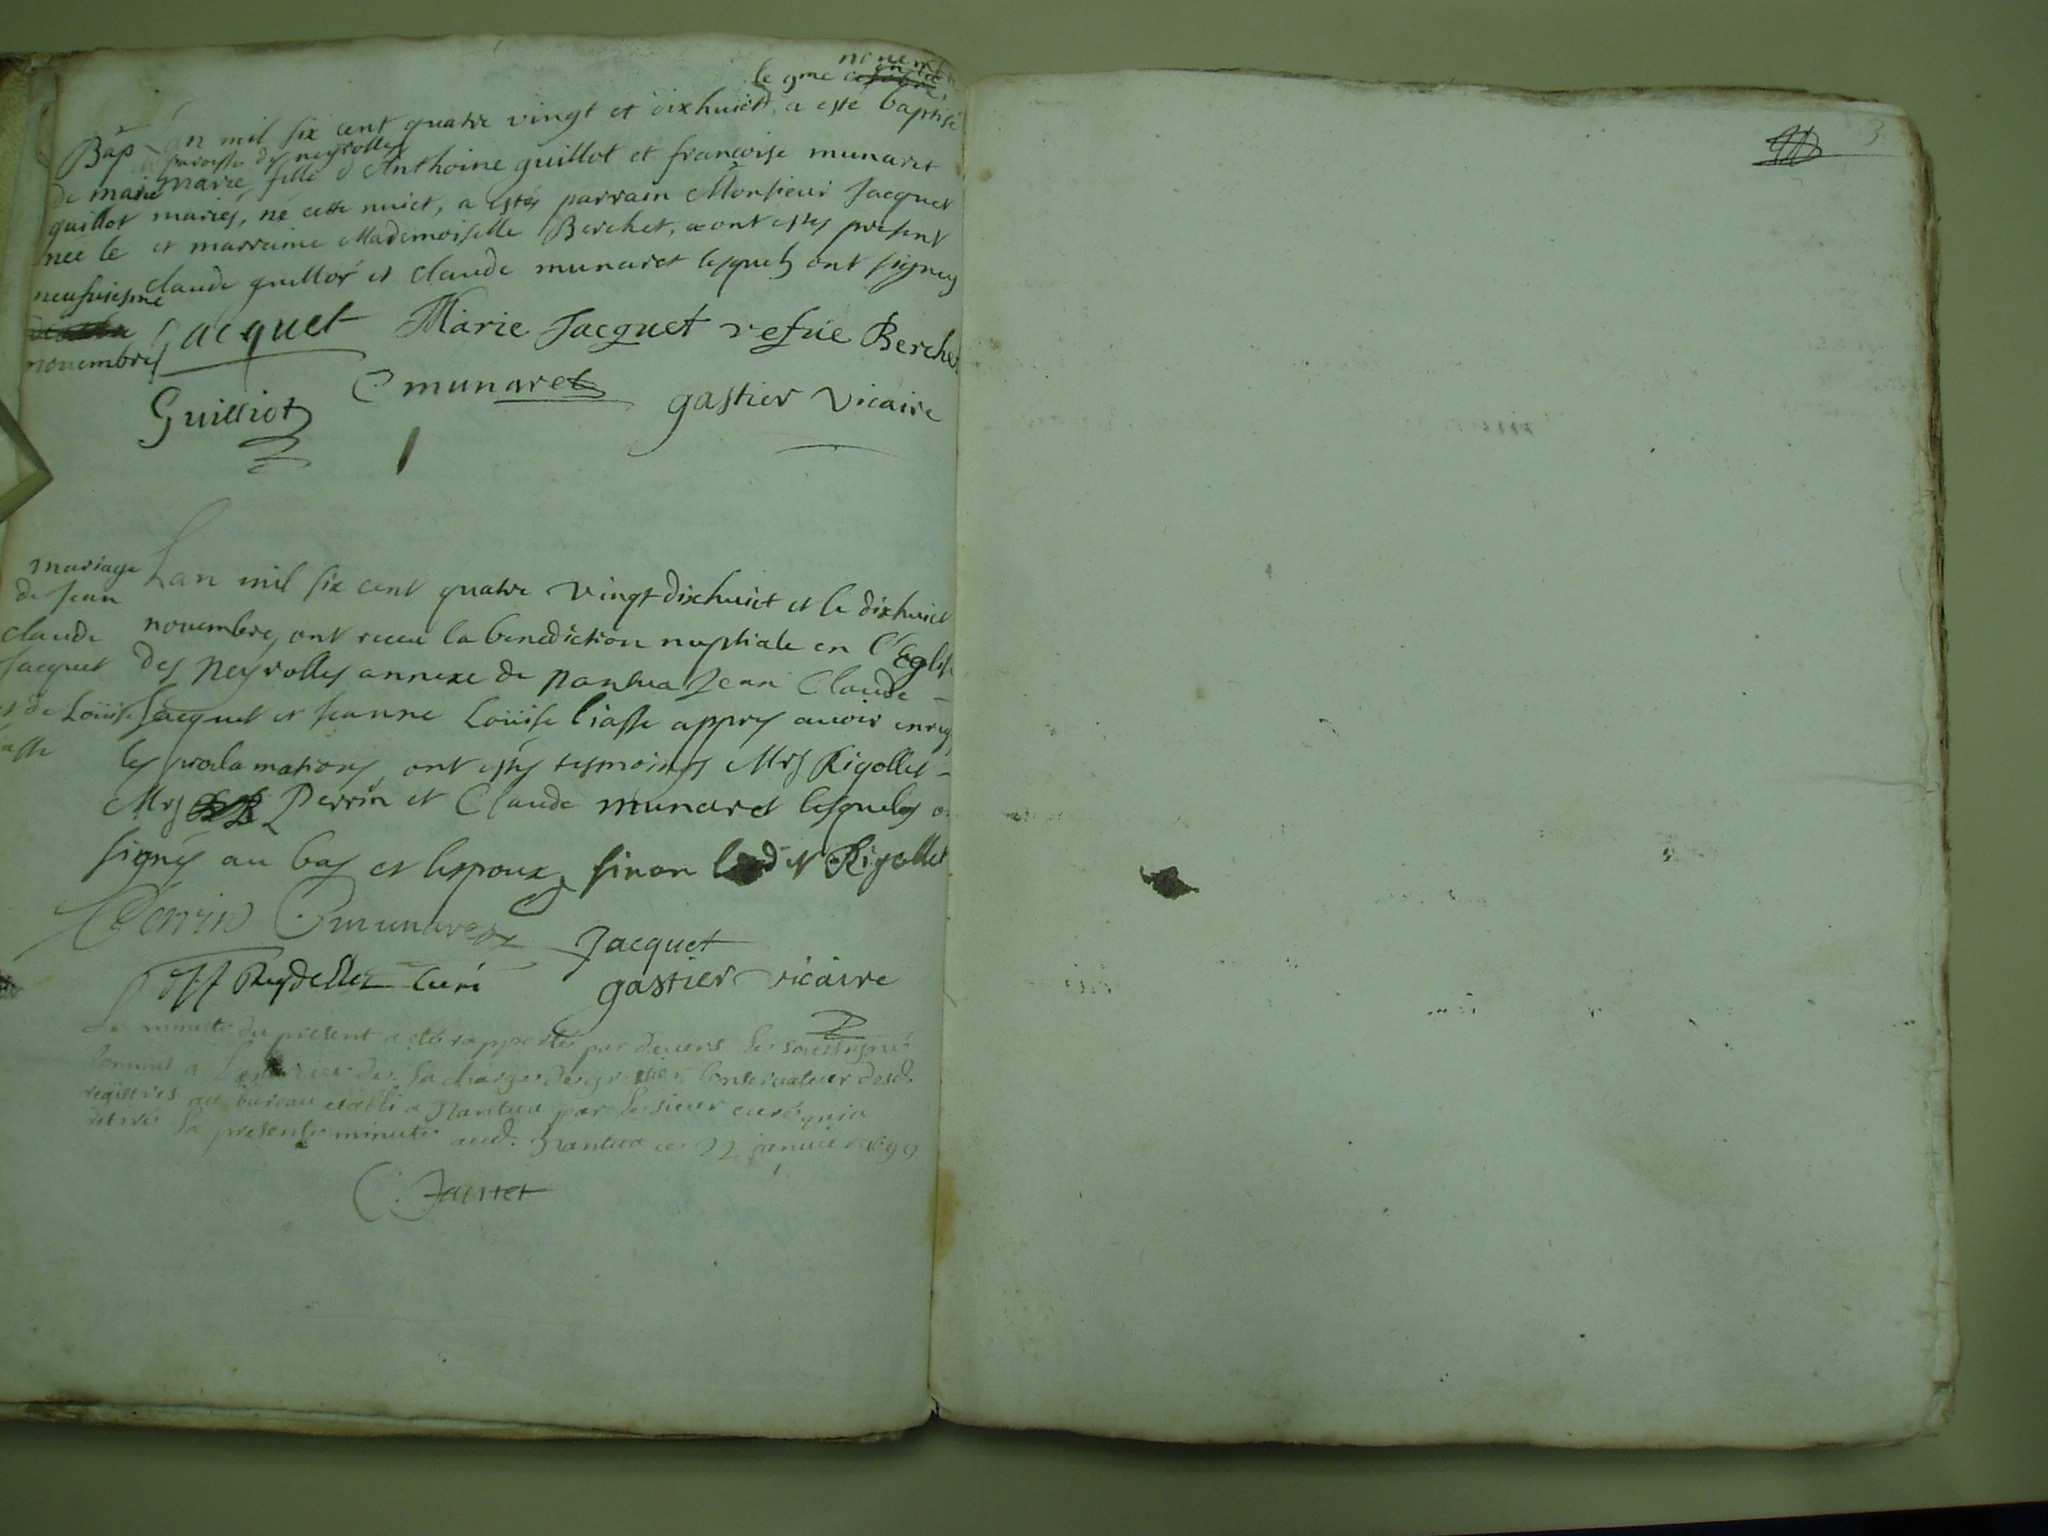 novembre
le 9me
Bap
Lan mil six cent quatre vingt et dixhuict, a esté baptisé
paroisse des neyrolles
de marie
marie, fille d'Anthoine guillot et francoise munaret
guillot
mariés, né cette nuict, a estés parrain Monsieur Jacquet
née le
et marraine Mademoiselle Berchet, ont estes present
neufviesme
claude guillot et claude munaret lesquels ont signes
novembres
Jacquet Marie Jacquet Berchet
Guilliot C munaret gastier vicaire
mariage
de Jean
claude
Jacquet
et de Loüise
Lan mil six cent quatre vingt dixhuict et le dixhuict
novembre, ont receu la benediction nuptiale en l'Eglise
des Neyrolles annexe de Nantua Jean Claude
Jacquet et Jeanne Loüise liasse appres avoir
les proclamations, ont estés tesmoings Mrs Rigollet
Mrs Perrin et Claude munaret lesquels
signés au bas et lespoux, sinon led et Rigollet
Perrin C munaret Jacquet
Reydellet Curé gastier vicaire
La minute du présent a eté rapportée par devens le soussigné
Commis a Lexercice de la charge de greffier Conservateur desd.
registres au bureau etabli a Nantua par le sieur curé qui a
retiré la presente minute aud. Nantua ce 22 janvier 1699
3